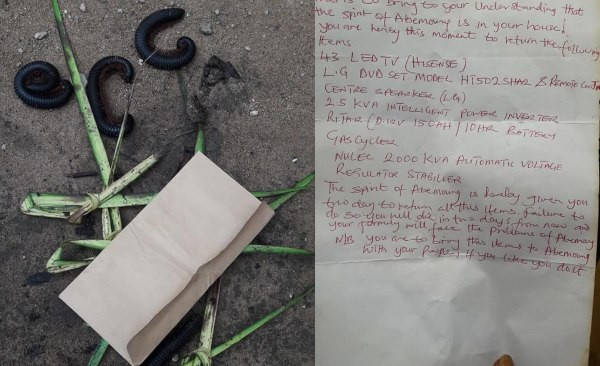 to bring to your understanding that
the spirit of Abemowng is in your house!
you are hereby this moment to return the following
Items
43 LED TV (HISENSE)
L.G DVD SET MODEL HT502SHAR & REMOTE
CENTRE SPEARKER (LG)
2.5 KVA INTELLIGENT POWER INVERTER
(12V 150AH / 10HR BATTERY
GAS CYCLER
NULEC 2000 KVA AUTOMATIC VOLTAGE
REGULATOR STABILIZER
The spirit of Abemowng is hereby given you
two day to return all this items failure to
do so you will die in two days from now and
your family will face the problems of Abemowng
NB you are to bring this items to Abemowng
with your if you like you do it